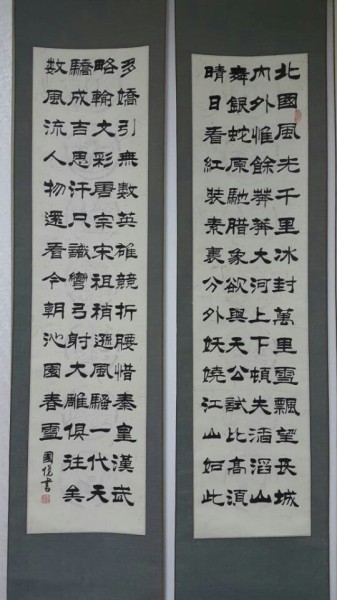 北國風光千里冰封萬里雪飄望長城
內外惟餘莽莽大河上下頓失滔滔山
舞銀蛇原馳腊象欲與天公試比高湏
晴日看紅裝素裹分外妖嬈江山如此
多嬌引無數英雄競折腰惜秦皇漢武
略輸文彩唐宗宋祖稍遜風騷一代天
驕成吉思汗只識彎弓射大雕俱往矣
數風流人物還看今朝沁園春雪
國悅書